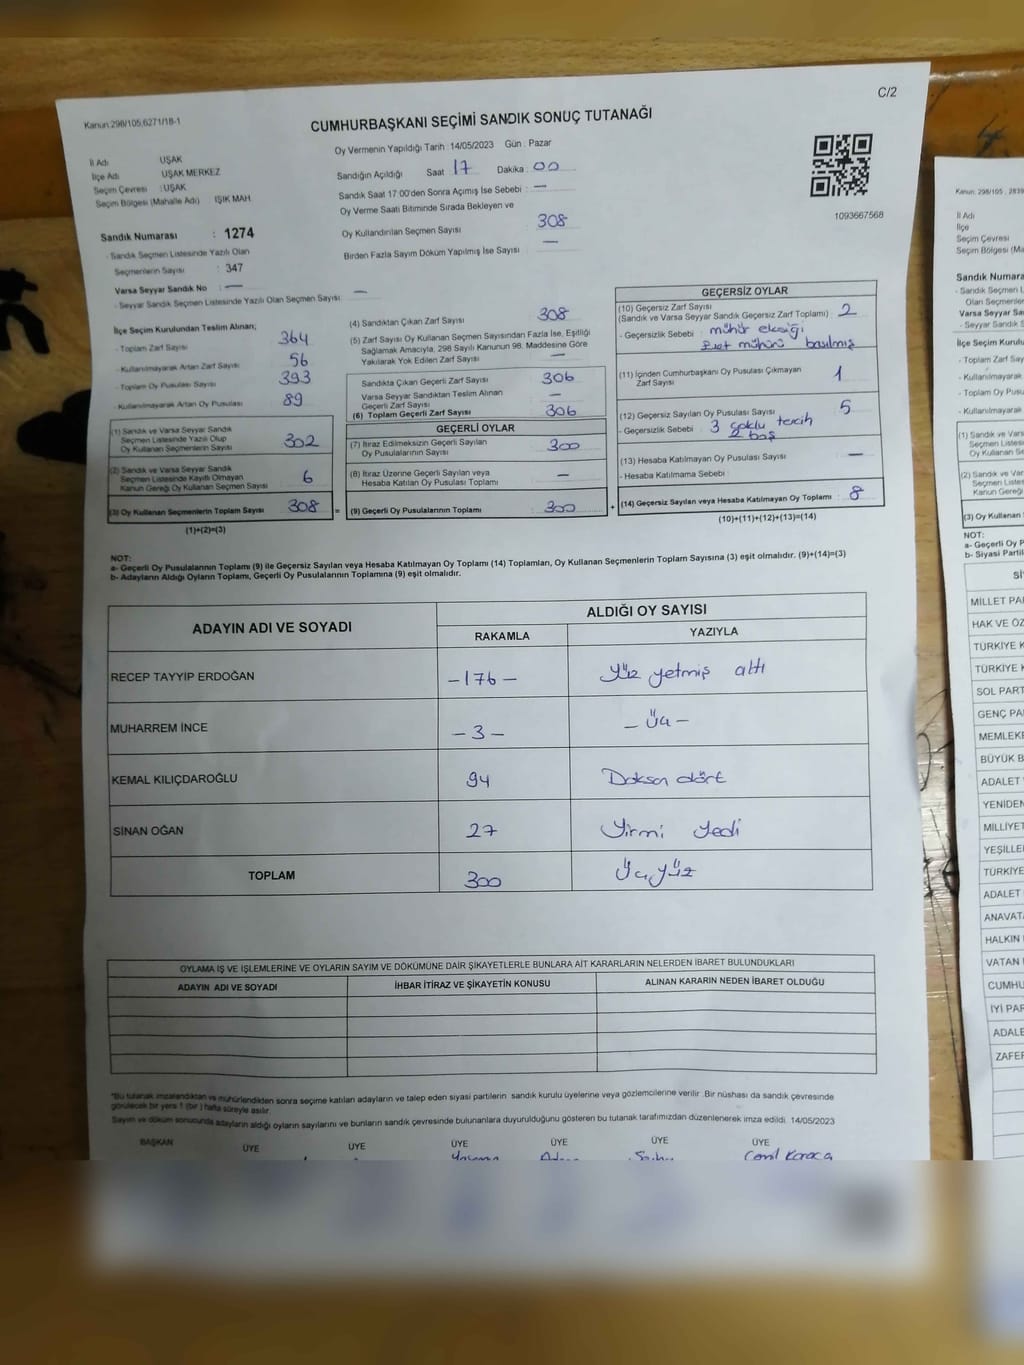 C/2
Kanun:298/105,6271/18-1
CUMHURBAŞKANI SEÇİMİ SANDIK SONUÇ TUTANAĞI
İl Adı UŞAK
İlçe Adı UŞAK MERKEZ
Seçim Çevresi : UŞAK
Seçim Bölgesi (Mahalle Adı) IŞIK MAH.
Sandık Numarası : 1274
- Sandık Seçmen Listesinde Yazılı Olan
Seçmenlerin Sayısı : 347
Varsa Seyyar Sandık No : —
- Seyyar Sandık Seçmen Listesinde Yazılı Olan Seçmen Sayısı: —
Oy Vermenin Yapıldığı Tarih : 14/05/2023 Gün : Pazar
Sandığın Açıldığı Saat 17 Dakika : 00
Sandık Saat 17:00'den Sonra Açımış İse Sebebi : —
Oy Verme Saati Bitiminde Sırada Bekleyen ve
Oy Kullandırılan Seçmen Sayısı : 308
Birden Fazla Sayım Döküm Yapılmış İse Sayısı : —
1093667568
İlçe Seçim Kurulundan Teslim Alınan;
- Toplam Zarf Sayısı 364
- Kullanılmayarak Artan Zarf Sayısı : 56
- Toplam Oy Pusulası Sayısı : 393
- Kullanılmayarak Artan Oy Pusulası : 89
(1) Sandık ve Varsa Seyyar Sandık
Seçmen Listesinde Yazılı Olup
Oy Kullanan Seçmenlerin Sayısı : 302
(2) Sandık ve Varsa Seyyar Sandık
Seçmen Listesinde Kayıtlı Olmayan
Kanun Gereği Oy Kullanan Seçmen Sayısı : 6
(3) Oy Kullanan Seçmenlerin Toplam Sayısı : 308
(1)+(2)=(3)
(4) Sandıktan Çıkan Zarf Sayısı : 308
(5) Zarf Sayısı Oy Kullanan Seçmen Sayısından Fazla İse, Eşitliği
Sağlamak Amacıyla, 298 Sayılı Kanunun 98. Maddesine Göre
Yakılarak Yok Edilen Zarf Sayısı : —
Sandıkta Çıkan Geçerli Zarf Sayısı : 306
Varsa Seyyar Sandıktan Teslim Alınan
Geçerli Zarf Sayısı : —
(6) Toplam Geçerli Zarf Sayısı : 306
GEÇERLİ OYLAR
(7) İtiraz Edilmeksizin Geçerli Sayılan
Oy Pusulalarının Sayısı : 300
(8) İtiraz Üzerine Geçerli Sayılan veya
Hesaba Katılan Oy Pusulası Toplamı : —
= (9) Geçerli Oy Pusulalarının Toplamı : 300
GEÇERSİZ OYLAR
(10) Geçersiz Zarf Sayısı : 2
(Sandık ve Varsa Seyyar Sandık Geçersiz Zarf Toplamı)
- Geçersizlik Sebebi : mühür eksiği
Evet mühürü basılmış
(11) İçinden Cumhurbaşkanı Oy Pusulası Çıkmayan
Zarf Sayısı : 1
(12) Geçersiz Sayılan Oy Pusulası Sayısı : 5
- Geçersizlik Sebebi : 3 çoklu tercih
2 boş
(13) Hesaba Katılmayan Oy Pusulası Sayısı : —
- Hesaba Katılmama Sebebi :
+ (14) Geçersiz Sayılan veya Hesaba Katılmayan Oy Toplamı : 8
(10)+(11)+(12)+(13)=(14)
NOT:
a- Geçerli Oy Pusulalarının Toplamı (9) ile Geçersiz Sayılan veya Hesaba Katılmayan Oy Toplamı (14) Toplamları, Oy Kullanan Seçmenlerin Toplam Sayısına (3) eşit olmalıdır. (9)+(14)=(3)
b- Adayların Aldığı Oyların Toplamı, Geçerli Oy Pusulalarının Toplamına (9) eşit olmalıdır.
ADAYIN ADI VE SOYADI
ALDIĞI OY SAYISI
RAKAMLA YAZIYLA
RECEP TAYYİP ERDOĞAN -176- Yüz yetmiş altı
MUHARREM İNCE -3- -Üç-
KEMAL KILIÇDAROĞLU 94 Doksan dört
SİNAN OĞAN 27 Yirmi Yedi
TOPLAM 300 Üçyüz
OYLAMA İŞ VE İŞLEMLERİNE VE OYLARIN SAYIM VE DÖKÜMÜNE DAİR ŞİKAYETLERLE BUNLARA AİT KARARLARIN NELERDEN İBARET BULUNDUKLARI
ADAYIN ADI VE SOYADI İHBAR İTİRAZ VE ŞİKAYETİN KONUSU ALINAN KARARIN NEDEN İBARET OLDUĞU
*Bu tutanak imzalandıktan ve mühürlendikten sonra seçime katılan adayların ve talep eden siyasi partilerin sandık kurulu üyelerine veya gözlemcilerine verilir. Bir nüshası da sandık çevresinde
görülecek bir yere 1 (bir) hafta süreyle asılır.
Sayım ve döküm sonucunda adayların aldığı oyların sayılarını ve bunların sandık çevresinde bulunanlara duyurulduğunu gösteren bu tutanak tarafımızdan düzenlenerek imza edildi. 14/05/2023
BAŞKAN ÜYE ÜYE ÜYE ÜYE ÜYE ÜYE
Cemil Karaca
Kanun: 298/105
İl Adı
İlçe
Seçim Çevresi
Seçim Bölgesi (M
Sandık Numara
- Sandık Seçmen L
Olan Seçmenler
Varsa Seyyar Sa
- Seyyar Sandık
İlçe Seçim Kurulu
- Toplam Zarf
- Kullanılmaya
- Toplam Oy P
- Kullanılmaya
(1) Sandık ve Vars
Seçmen Listesi
Oy Kullanan Se
(2) Sandık ve Va
Seçmen Listes
Kanun Gereğ
(3) Oy Kullanan
NOT:
a- Geçerli Oy P
b- Siyasi Partil
Sİ
MİLLET PA
HAK VE ÖZ
TÜRKİYE K
TÜRKİYE
SOL PART
GENÇ PA
MEMLEKE
BÜYÜK B
ADALET
YENİDEN
MİLLİYET
YEŞİLLE
TÜRKİYE
ADALET
ANAVATA
HALKIN
VATAN
CUMHU
İYİ PAR
ADALE
ZAFER